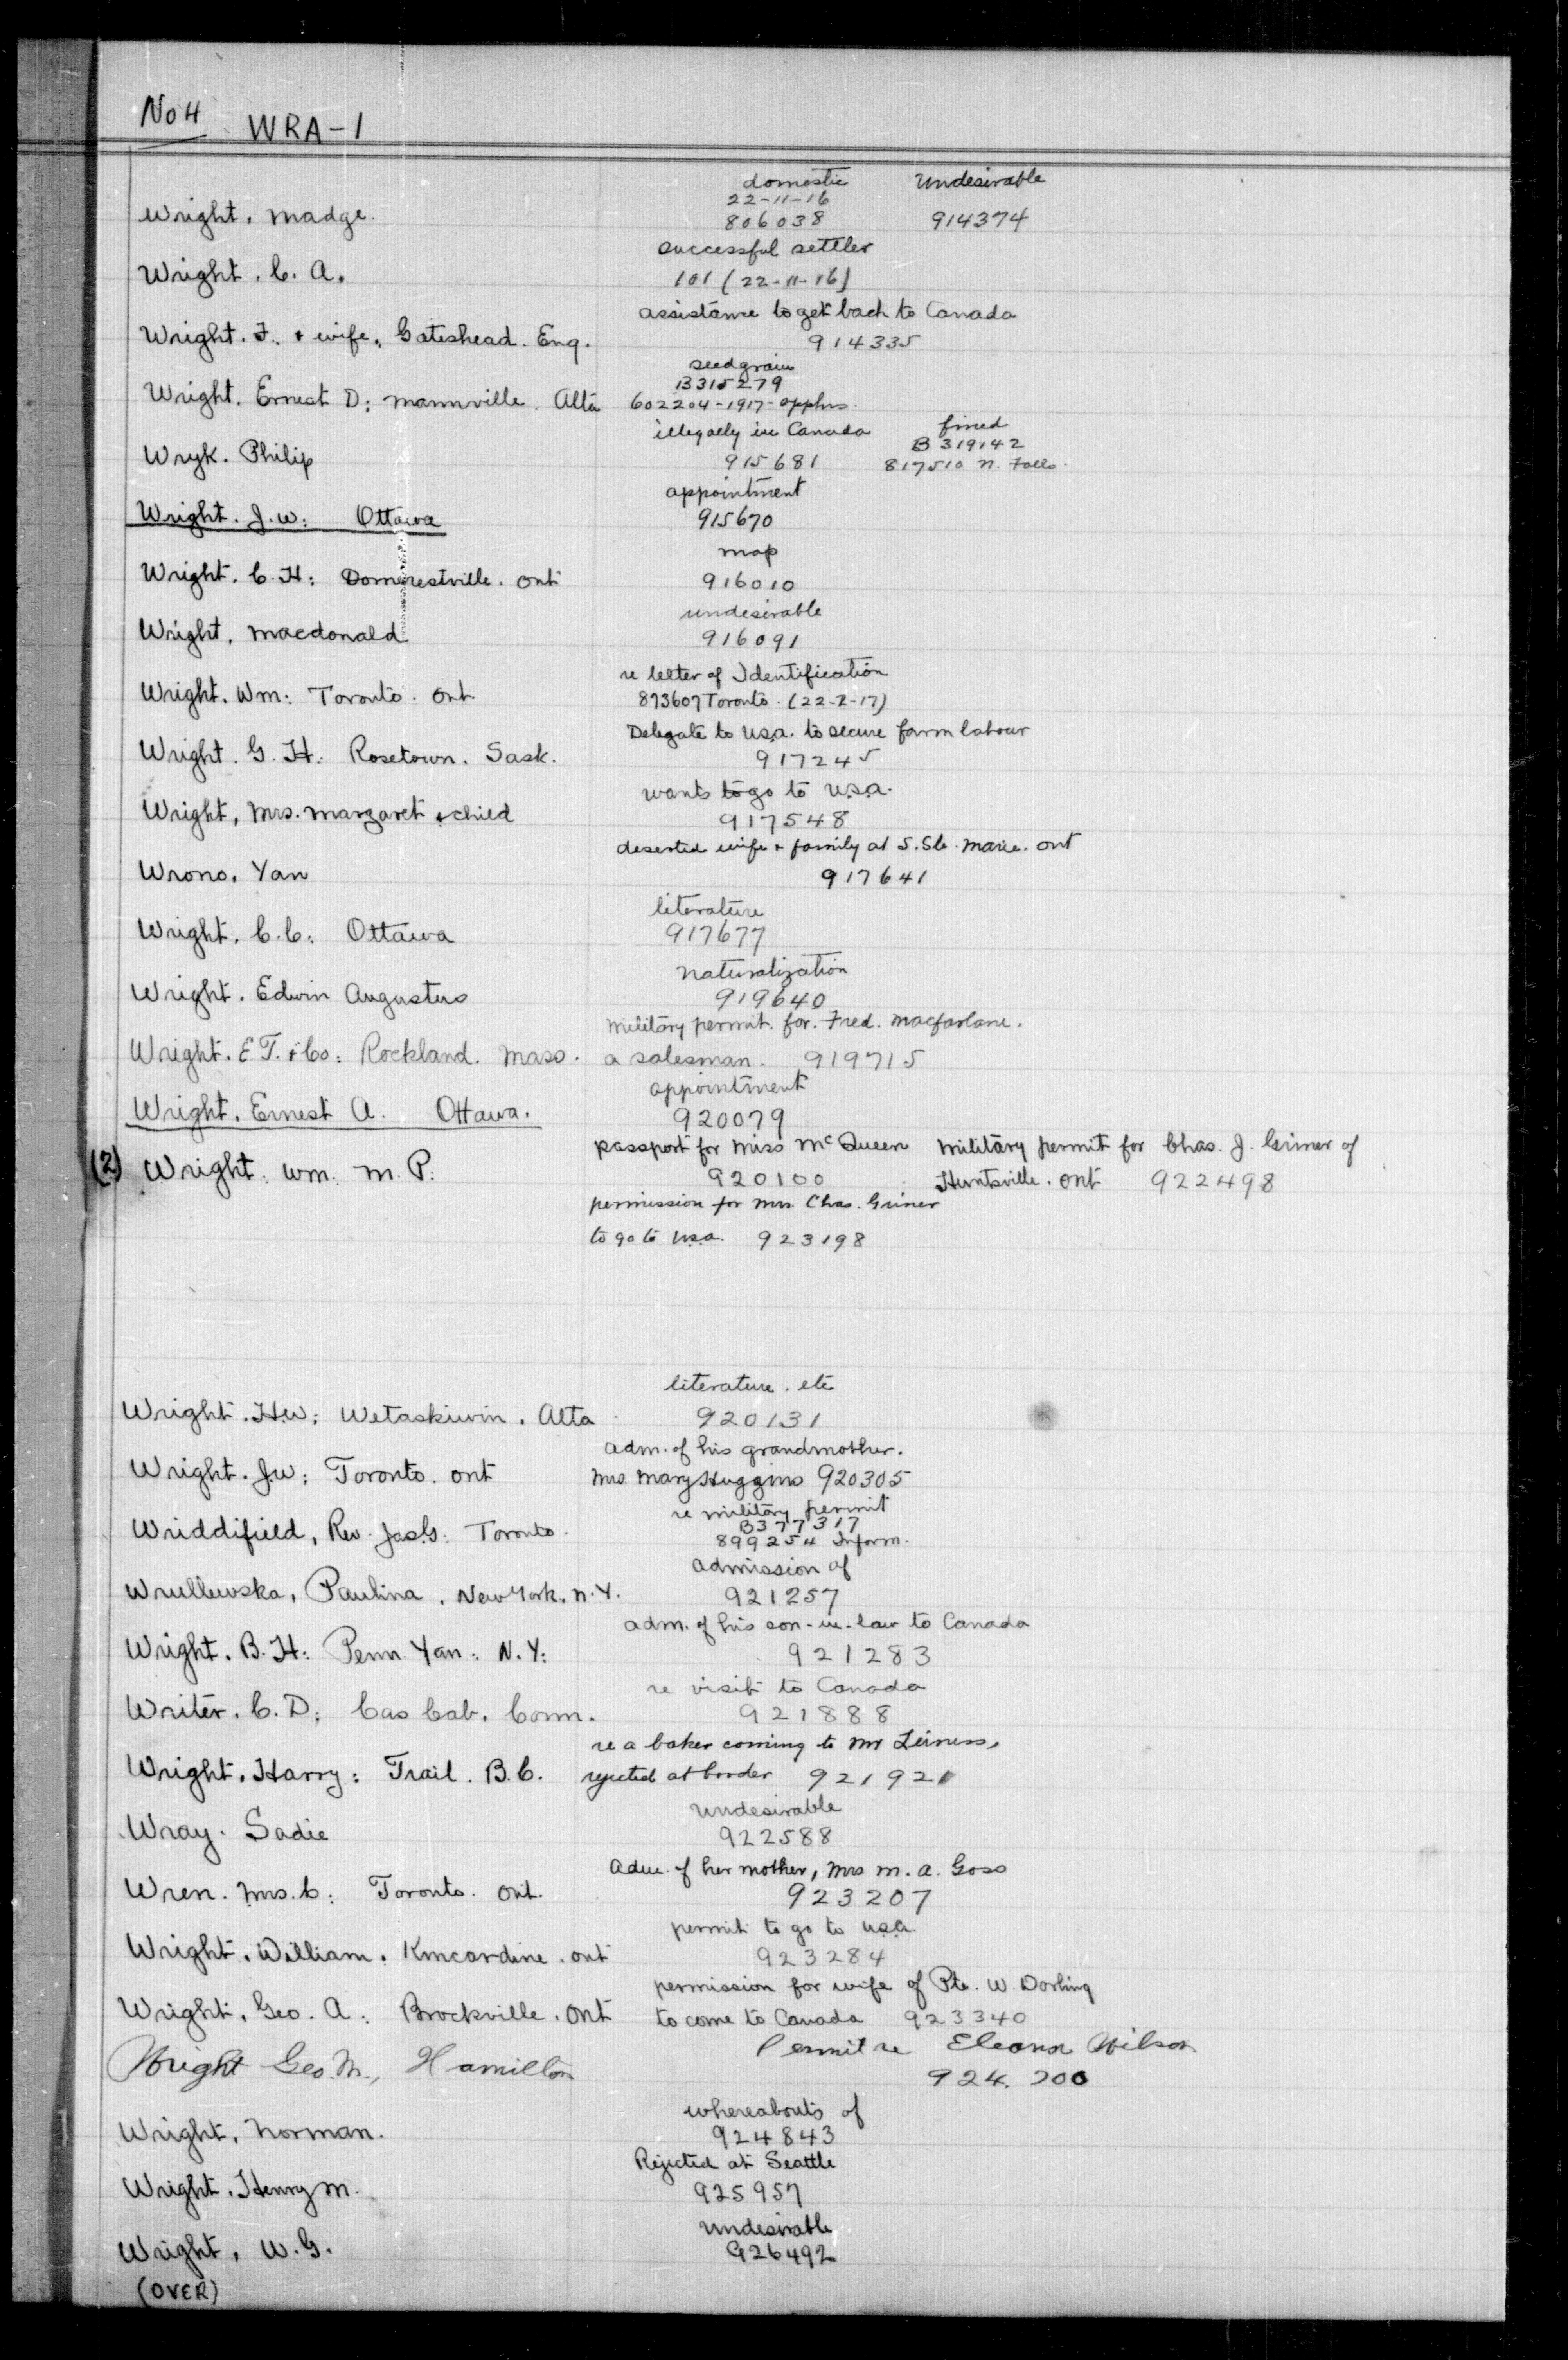 No 4 WRA-1
domestic Undesirable
22-11-16
Wright, Madge. 806038 914374
successful settler
Wright. C. A. 101 (22-11-16)
assistance to get back to Canada
Wright. F. + wife, Gateshead. Eng. 914335
seed grain
B315279
Wright. Ernest D: Mannville. Alta 602204-1917-opphs.
illegally in Canada fined
B 319142
Wryk. Philip 915681 817510 N. Falls.
appointment
Wright. J.W: Ottawa 915670
map
Wright. C.H: Domerestville. Ont 916010
undesirable
Wright, Macdonald 916091
re letter of Identification
Wright. Wm: Toronto. Ont. 873607 Toronto. (22-2-17)
Delegate to U.S.A. to secure farm labour
Wright. G. H: Rosetown. Sask. 917245
wants to go to U.S.A.
Wright, Mrs. Margaret & child 917548
deserted wife & family at S. Ste. Marie. Ont
Wrono, Yan 917641
literature
Wright. C.C: Ottawa 917677
naturalization
Wright. Edwin Augustus 919640
military permit. for. Fred. Macfarlane.
Wright. E.T. & Co: Rockland. Mass. a salesman. 919715
appointment
Wright. Ernest A. Ottawa. 920079
passport for Miss McQueen military permit for Chas. J. Griner of
(2) Wright. Wm. M.P: 920100 Huntsville. Ont 922498
permission for Mrs. Chas. Griner
to go to U.S.A. 923198
literature. etc
Wright. H.W: Wetaskiwin. Alta 920131
adm. of his grandmother.
Wright. J.W: Toronto. Ont Mrs. Mary Huggins 920305
re military permit
B377317
Wriddifield, Rev. Jas. G: Toronto. 899254 Inform.
admission of
Wrullewska, Paulina. New York. N.Y. 921257
adm. of his son-in-law to Canada
Wright. B.H: Penn. Yan: N.Y: 921283
re visit to Canada
Writer. C.D: Cas Cab. Conn. 921888
re a baker coming to Mr Leiness,
Wright. Harry: Trail. B.C. rejected at border 921921
Undesirable
Wray. Sadie 922588
Adm. of her mother, Mrs M. A. Goss
Wren. Mrs. C: Toronto. Ont. 923207
permit to go to U.S.A.
Wright. William. Kincardine. Ont 923284
permission for wife of Pte. W. Dorling
Wright. Geo. A: Brockville. Ont to come to Canada 923340
Permit re Eleanor Wilson
Wright Geo. M., Hamilton 924.200
whereabouts of
Wright, Norman. 924843
Rejected at Seattle
Wright. Henry M. 925957
Undesirable
Wright, W.G. 926492
(OVER)